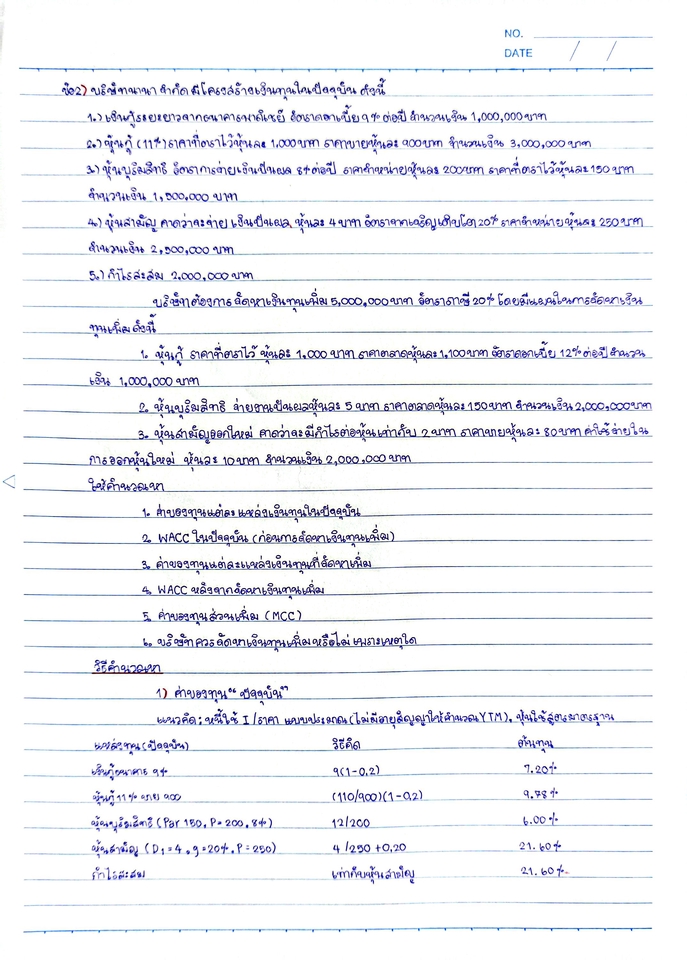 NO.
DATE / /
ข้อ2) บริษัทนานา จำกัด มีโครงสร้างเงินทุนในปัจจุบัน ดังนี้
1.) เงินกู้ระยะยาวจากธนาคารพาณิชย์ อัตราดอกเบี้ย 9% ต่อปี จำนวนเงิน 1,000,000 บาท
2.) หุ้นกู้ (11%) ราคาที่ตราไว้หุ้นละ 1,000 บาท ราคาขายหุ้นละ 900 บาท จำนวนเงิน 3,000,000 บาท
3.) หุ้นบุริมสิทธิ อัตราการจ่ายเงินปันผล 8% ต่อปี ราคาจำหน่ายหุ้นละ 200 บาท ราคาที่ตราไว้หุ้นละ 150 บาท
จำนวนเงิน 1,500,000 บาท
4.) หุ้นสามัญ คาดว่าจะจ่าย เงินปันผล หุ้นละ 4 บาท อัตราการเจริญเติบโต 20% ราคาจำหน่ายหุ้นละ 250 บาท
จำนวนเงิน 2,500,000 บาท
5.) กำไรสะสม 2,000,000 บาท
บริษัทต้องการจัดหาเงินทุนเพิ่ม 5,000,000 บาท อัตราภาษี 20% โดยมีแผนในการจัดหาเงิน
ทุนเพิ่มดังนี้
1. หุ้นกู้ ราคาที่ตราไว้ หุ้นละ 1,000 บาท ราคาตลาดหุ้นละ 1,100 บาท อัตราดอกเบี้ย 12% ต่อปี จำนวน
เงิน 1,000,000 บาท
2. หุ้นบุริมสิทธิ จ่ายเงินปันผลหุ้นละ 5 บาท ราคาตลาดหุ้นละ 150 บาท จำนวนเงิน 2,000,000 บาท
3. หุ้นสามัญออกใหม่ คาดว่าจะมีกำไรต่อหุ้นเท่ากับ 2 บาท ราคาขายหุ้นละ 80 บาท ค่าใช้จ่ายใน
การออกหุ้นใหม่ หุ้นละ 10 บาท จำนวนเงิน 2,000,000 บาท
ให้คำนวณหา
1. ค่าของทุนแต่ละแหล่งเงินทุนในปัจจุบัน
2. WACC ในปัจจุบัน (ก่อนการจัดหาเงินทุนเพิ่ม)
3. ค่าของทุนแต่ละแหล่งเงินทุนที่จัดหาเพิ่ม
4. WACC หลังจากจัดหาเงินทุนเพิ่ม
5. ค่าของทุนส่วนเพิ่ม (MCC)
6. บริษัทควรจัดหาเงินทุนเพิ่มหรือไม่ เพราะเหตุใด
วิธีคำนวณหา
1) ค่าของทุน "ปัจจุบัน"
แนวคิด: หนี้ใช้ I/ราคา แบบประมาณ (ไม่มีอายุสัญญาให้คำนวณ YTM), หุ้นใช้สูตรมาตรฐาน
แหล่งทุน (ปัจจุบัน) วิธีคิด ต้นทุน
เงินกู้ธนาคาร 9% 9(1-0.2) 7.20%
หุ้นกู้ 11% ขาย 900 (110/900)(1-0.2) 9.78%
หุ้นบุริมสิทธิ (Par 150, P=200, 8%) 12/200 6.00%
หุ้นสามัญ (D₁=4, g=20%, P=250) 4/250+0.20 21.60%
กำไรสะสม เท่ากับหุ้นสามัญ 21.60%